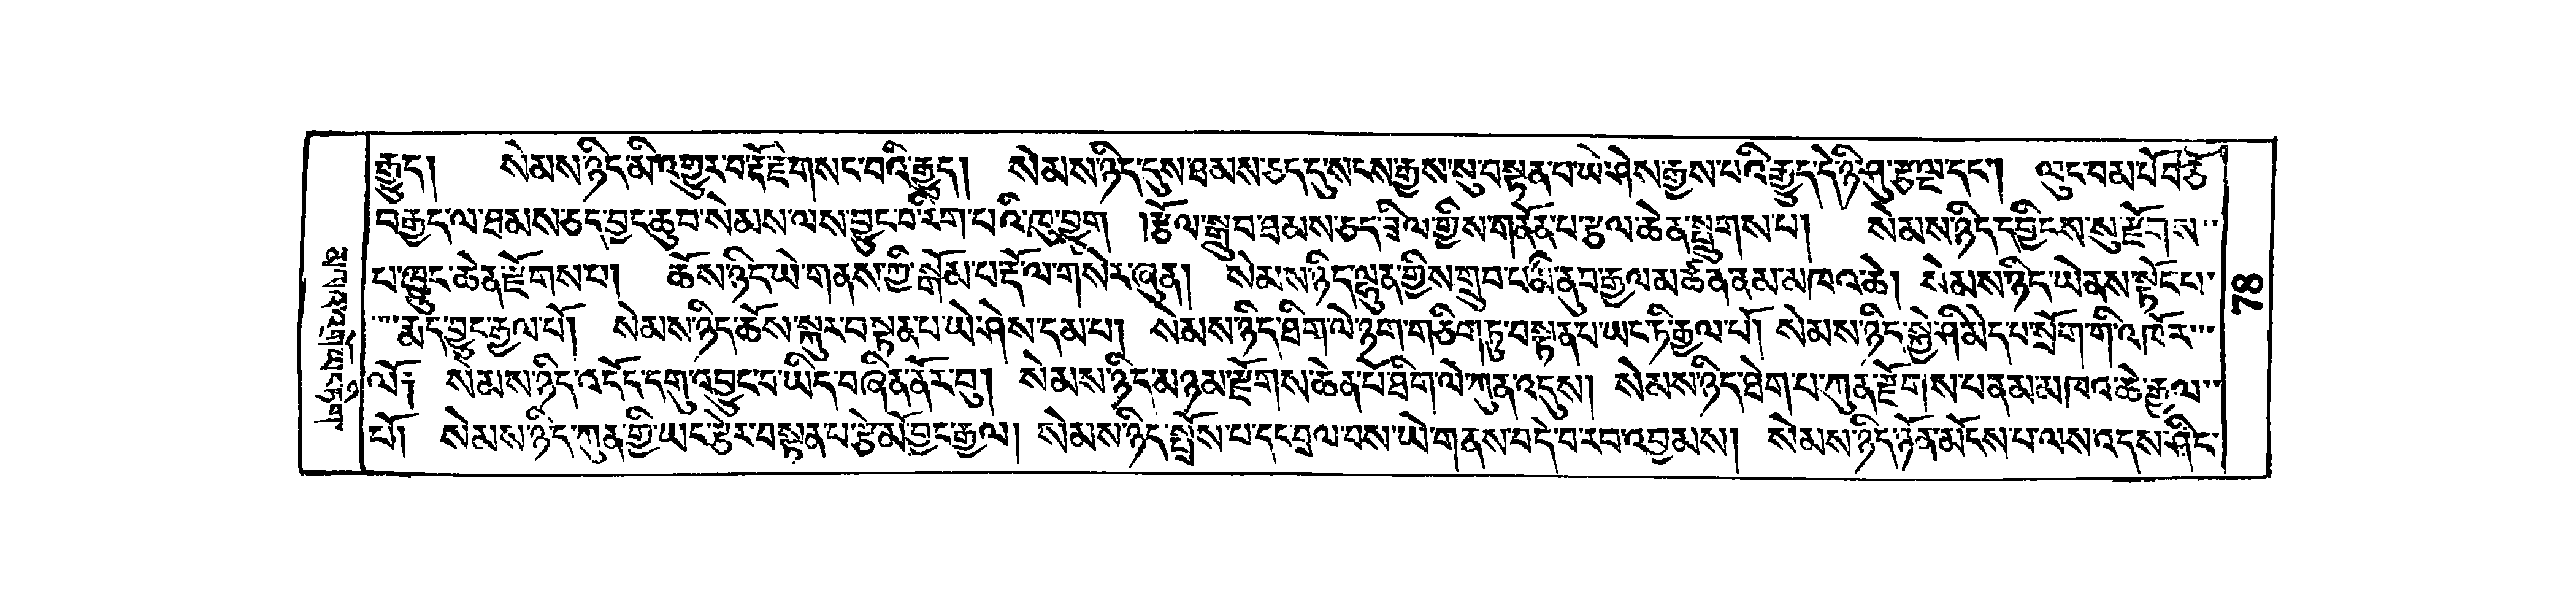 རྒྱུད། སེམས་ཉིད་མི་འགྱུར་བ་རྡོ་རྗེ་གསང་བའི་རྒྱུད། སེམས་ཉིད་དུས་ཐམས་ཅད་དུ་སངས་རྒྱས་སུ་བསྟན་པ་ཡེ་ཤེས་རྒྱས་པའི་རྒྱུད་དེ་ཉི་ཤུ་རྩ་ལྔ་དང་། ལུང་བམ་པོ་བཅོ་
བརྒྱད་ལ་ཐམས་ཅད་བྱང་ཆུབ་སེམས་ལས་བྱུང་བ་རིག་པའི་ཁུ་བྱུག །རྩོལ་སྒྲུབ་ཐམས་ཅད་ཟིལ་གྱིས་གནོན་པ་རྩལ་ཆེན་སྤྲུགས་པ། སེམས་ཉིད་དབྱིངས་སུ་རྫོགས་
པ་ཁྱུང་ཆེན་རྫོགས་པ། ཆོས་ཉིད་ཡེ་གནས་ཀྱི་སྒོམ་པ་རྡོ་ལ་གསེར་ཞུན། སེམས་ཉིད་ལྷུན་གྱིས་གྲུབ་པ་མི་ནུབ་རྒྱལ་མཚན་ནམ་མཁའ་ཆེ། སེམས་ཉིད་ཡེ་ནས་སྟོང་པ་
རྨད་བྱུང་རྒྱལ་པོ། སེམས་ཉིད་ཆོས་སྐུར་བསྟན་པ་ཡེ་ཤེས་དམ་པ། སེམས་ཉིད་ཐིག་ལེ་ཉག་གཅིག་ཏུ་བསྟན་པ་ཡང་ཏི་རྒྱལ་པོ། སེམས་ཉིད་སྐྱེ་ཤི་མེད་པ་སྲོག་གི་འཁོར་
ལོ། སེམས་ཉིད་འདོད་དགུ་འབྱུང་བ་ཡིད་བཞིན་ནོར་བུ། སེམས་ཉིད་མཉམ་རྫོགས་ཆེན་པོ་ཐིག་ལེ་ཀུན་འདུས། སེམས་ཉིད་ཐེག་པ་ཀུན་རྫོགས་པ་ནམ་མཁའ་ཆེ་རྒྱལ་
པོ། སེམས་ཉིད་ཀུན་གྱི་ཡང་རྩེར་བསྟན་པ་རྩེ་མོ་བྱང་རྒྱལ། སེམས་ཉིད་སྤྲོས་པ་དང་བྲལ་བས་ཡེ་གནས་བདེ་བ་རབ་འབྱམས། སེམས་ཉིད་ཉོན་མོངས་པ་ལས་འདས་ཤིང་